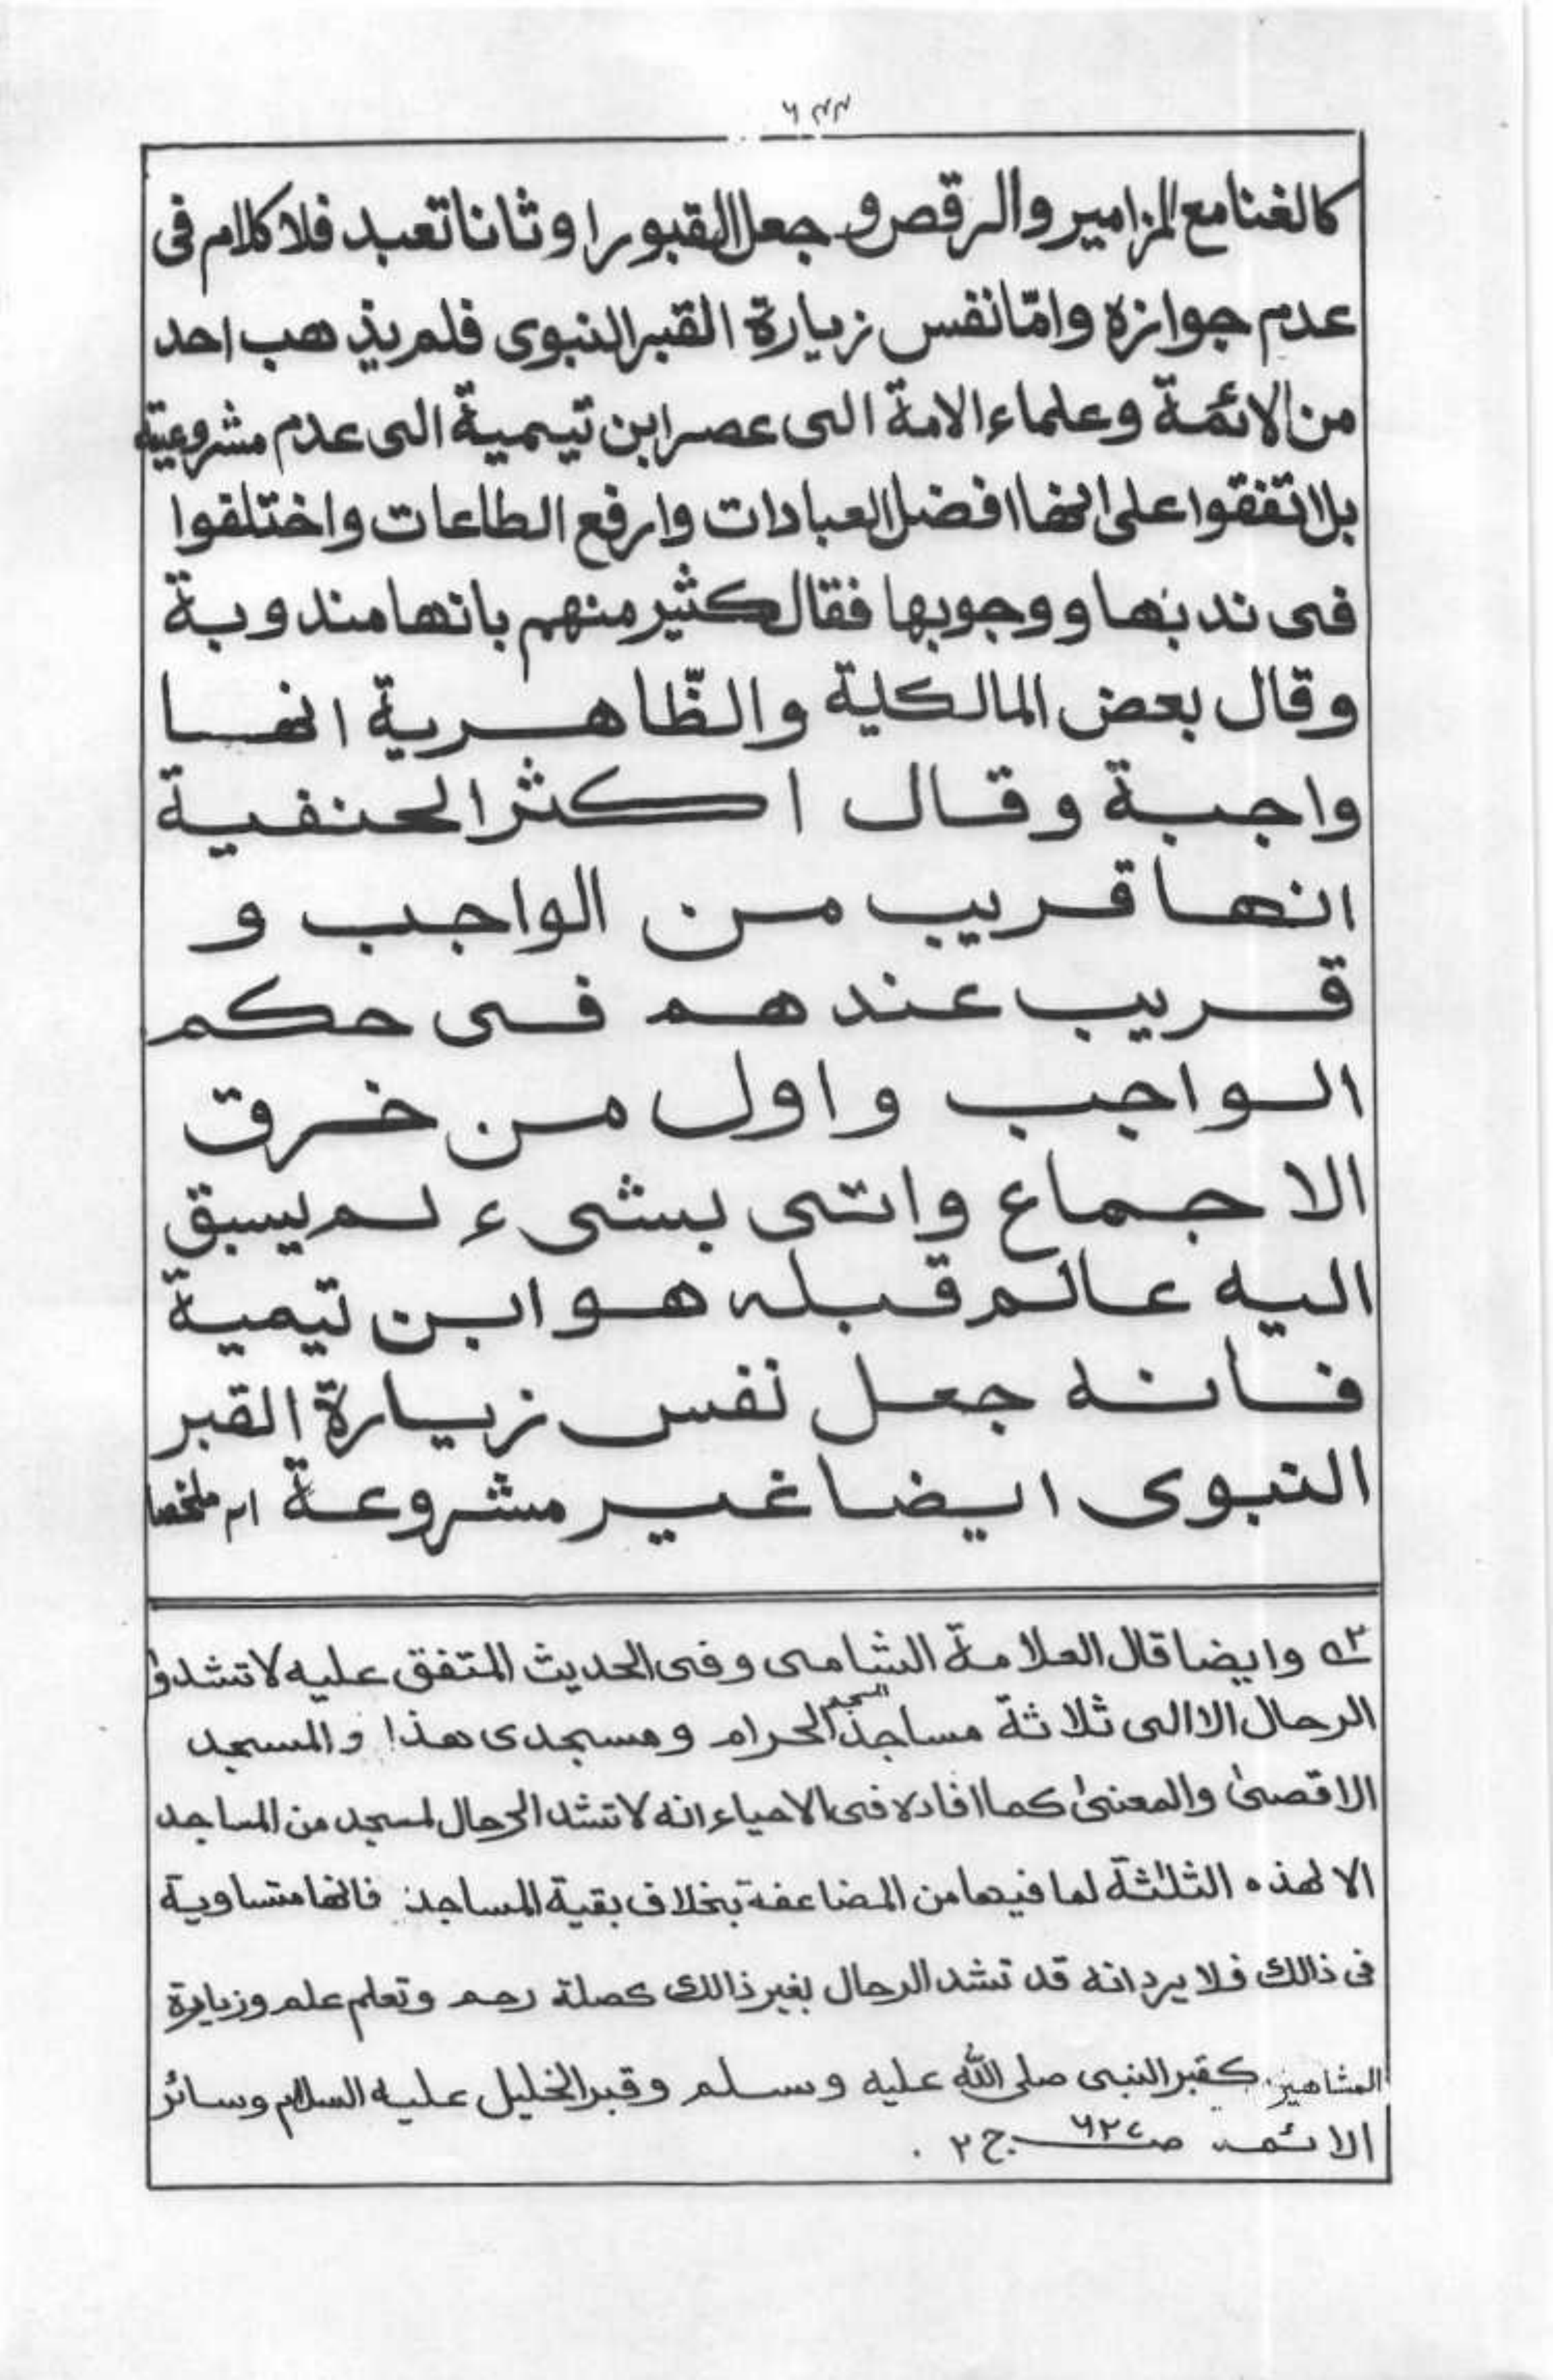 ٦٣٣
كالغنا مع المزامير والرقص و جعل القبور اوثانا تعبد فلا كلام فى
عدم جوازه وامّا نفس زيارة القبر النبوى فلم يذهب احد
من الائمة وعلماء الامة الى عصر ابن تيمية الى عدم مشروعية
بل اتفقوا على انها افضل العبادات وارفع الطاعات واختلفوا
فى ندبها ووجوبها فقال كثير منهم بانها مندوبة
وقال بعض المالكية والظّاهرية انها
واجبة وقال اكثر الحنفية
انها قريب من الواجب و
قريب عندهم فى حكم
الواجب واول من خرق
الاجماع واتى بشىء لم يسبق
اليه عالم قبله هو ابن تيمية
فانه جعل نفس زيارة القبر
النبوى ايضا غير مشروعة اھ ملخصا
٣ـه وايضا قال العلامة الشامى وفى الحديث المتفق عليه لا تشدوا
الرحال الا الى ثلاثة مساجد المسجد الحرام ومسجدى هذا والمسجد
الاقصىٰ والمعنىٰ كما افاده فى الاحياء انه لا تشد الرحال لمسجد من المساجد
الا لهذه الثلٰثة لما فيها من المضاعفة بخلاف بقية المساجد فانها متساوية
فى ذالك فلا يرد انه قد تشد الرحال بغير ذالك كصلة رحم وتعلم علم وزيارة
المشاهير كقبر النبى صلى الله عليه وسلم وقبر الخليل عليه السلام وسائر
الائمة صـ٦٢٧ ج ٢ .